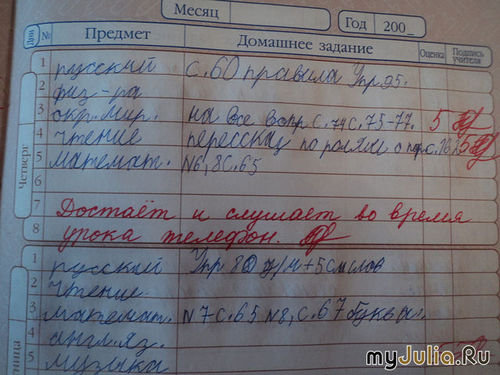 Месяц Год 200_
Дни № Предмет Домашнее задание Оценка Подпись учителя
Четверг
1 русский с.60 правила Упр 95.
2 физ-ра
3 окр. мир. на все вопр с.74 с.75-77. 5
4 чтение пересказ по ролям с.
5 математ. N6, 8 с.65
6
7 Достаёт и слушает во время
8 урока телефон.
ница
1 русский Упр 80 + 5 слов
2 чтение
3 математ. N7 с.65 N8, с.67 буквы.
4 англ. яз.
5 музыка
myJulia.Ru